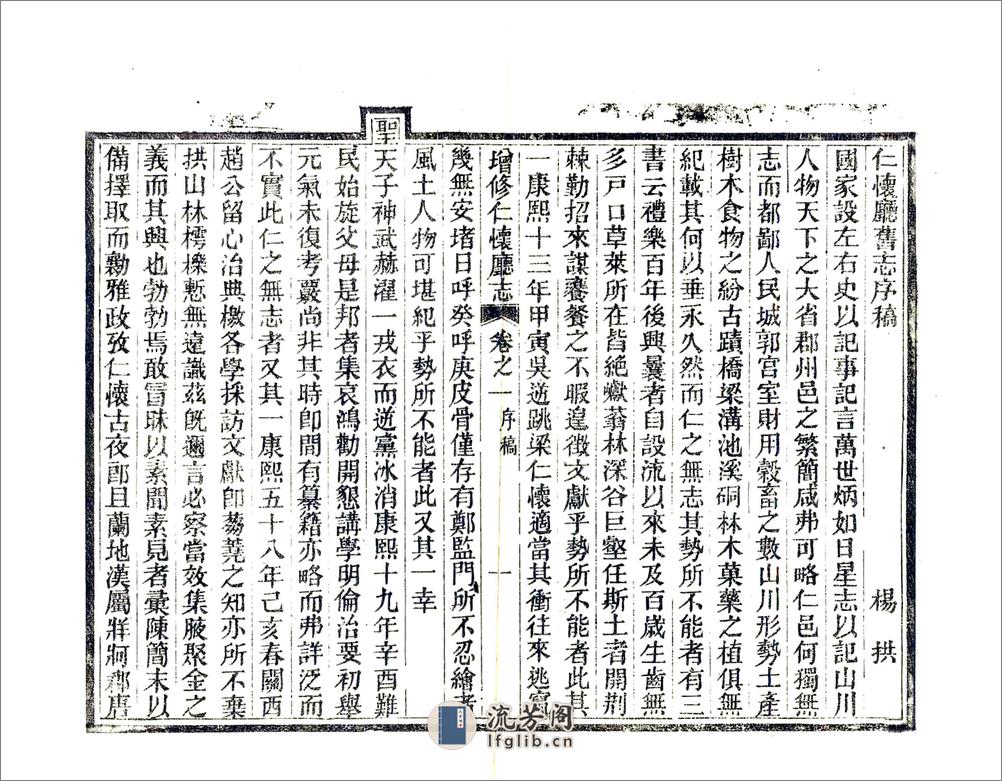 仁懷廳舊志序稿 楊拱
國家設左右史以記事記言萬世炳如日星志以記山川
人物天下之大省郡州邑之繁簡咸弗可略仁邑何獨無
志而都鄙人民城郭宮室財用穀畜之數山川形勢土產
樹木食物之紛古蹟橋梁溝池溪硐林木菓藥之植俱無
紀載其何以垂永久然而仁之無志其勢所不能者有三
書云禮樂百年後興曩者自設流以來未及百歲生齒無
多戸口草萊所在皆絕巘蓊林深谷巨壑任斯土者開荆
棘勤招來謀饔餐之不暇遑徵文獻乎勢所不能者此其
一康熙十三年甲寅吳逆跳梁仁懷適當其衝往來逃竄
增修仁懷廳志 卷之一 序稿 一
幾無安堵日呼癸呼庚皮骨僅存有鄭監門所不忍繪者
風土人物可堪紀乎勢所不能者此又其一幸
聖
天子神武赫濯一戎衣而逆黨冰消康熙十九年辛酉難
民始旋父母是邦者集哀鴻勸開懇講學明倫治要初舉
元氣未復考覈尚非其時卽間有纂籍亦略而弗詳泛而
不實此仁之無志者又其一康熙五十八年己亥春關西
趙公留心治典檄各學採訪文獻卽蒭蕘之知亦所不棄
拱山林樗櫟慙無遠識茲旣邇言必察當效集腋聚金之
義而其興也勃勃焉敢冒昧以素聞素見者彙陳簡末以
備擇取而勷雅政攷仁懷古夜郎且蘭地漢屬牂牁郡唐
流芳阁
lfglib.cn